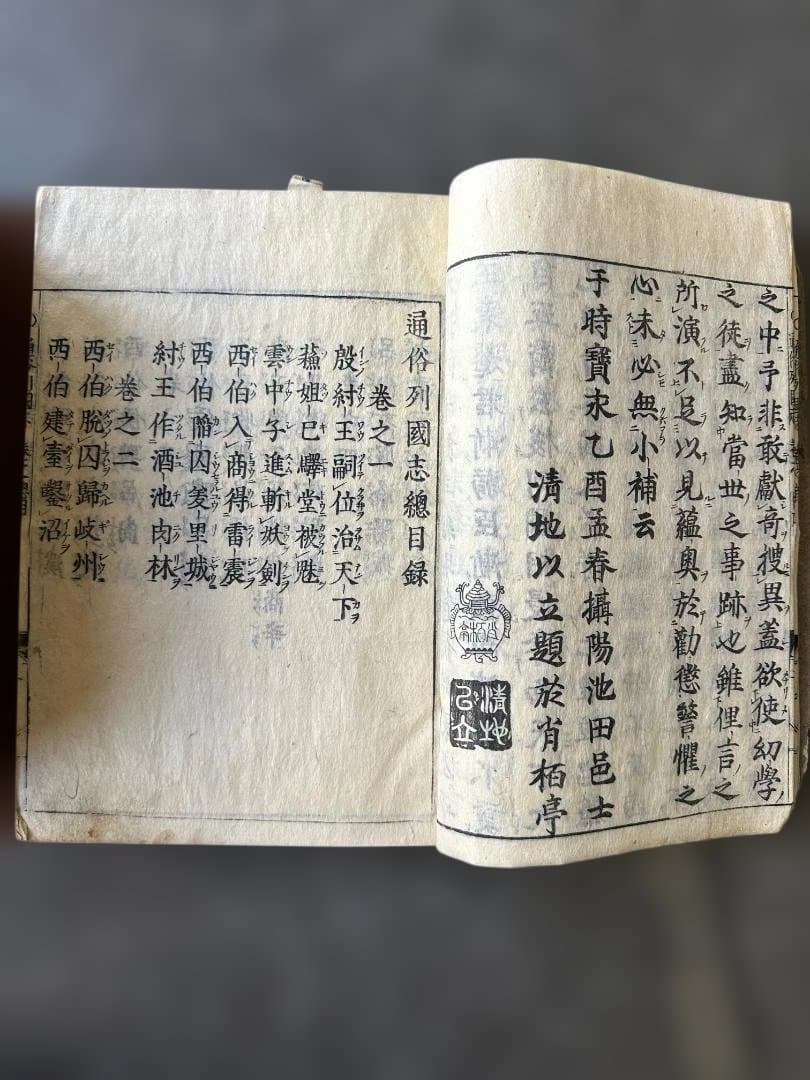 之中予非敢獻奇搜異蓋欲使幼學
之徒盡知當世之事跡也雖俚言之
所演不足以見蘊奥於勸懲警懼之
心未必無小補云
于時寶永乙酉孟春攝陽池田邑士
清地以立題於肖栢亭
肖栢亭
清地以立
通俗列國志總目録
卷之一
殷紂王嗣位治天下
蘓妲己驛堂被魅
雲中子進斬妖劍
西伯入商得雷震
西伯陷囚羑里城
紂王作酒池肉林
卷之二
西伯脱囚歸岐州
西伯建臺鑿沼